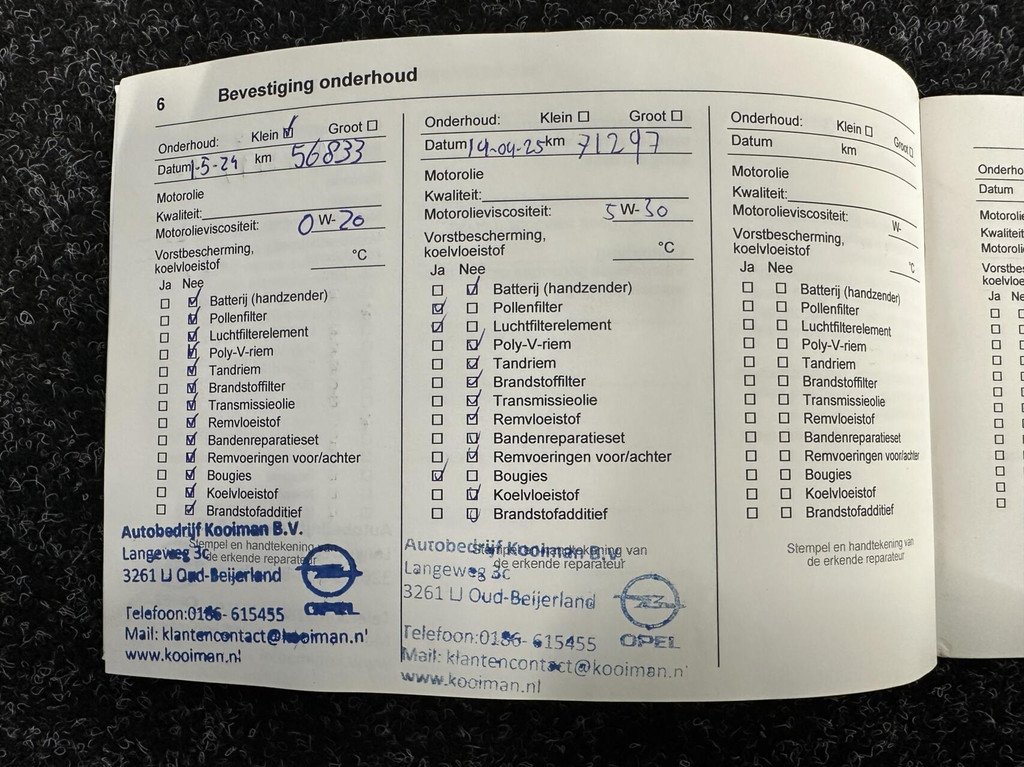 6 Bevestiging onderhoud
Onderhoud: Klein ☑ Groot ☐
Datum 1-5-24 km 56833
Motorolie
Kwaliteit:
Motorolieviscositeit: 0 W- 20
Vorstbescherming,
koelvloeistof °C
Ja Nee
☐ ☑ Batterij (handzender)
☐ ☑ Pollenfilter
☐ ☑ Luchtfilterelement
☐ ☑ Poly-V-riem
☐ ☑ Tandriem
☐ ☑ Brandstoffilter
☐ ☑ Transmissieolie
☐ ☑ Remvloeistof
☐ ☑ Bandenreparatieset
☐ ☑ Remvoeringen voor/achter
☐ ☑ Bougies
☐ ☑ Koelvloeistof
☐ ☑ Brandstofadditief
Stempel en handtekening van
de erkende reparateur
Autobedrijf Kooiman B.V.
Langeweg 3c
3261 LJ Oud-Beijerland
OPEL
Telefoon:0186-615455
Mail: klantencontact@kooiman.nl
www.kooiman.nl
Onderhoud: Klein ☐ Groot ☐
Datum 14-04-25 km 71297
Motorolie
Kwaliteit:
Motorolieviscositeit: 5 W- 30
Vorstbescherming,
koelvloeistof °C
Ja Nee
☐ ☑ Batterij (handzender)
☑ ☐ Pollenfilter
☑ ☐ Luchtfilterelement
☐ ☑ Poly-V-riem
☐ ☑ Tandriem
☐ ☑ Brandstoffilter
☐ ☑ Transmissieolie
☐ ☑ Remvloeistof
☐ ☑ Bandenreparatieset
☐ ☑ Remvoeringen voor/achter
☑ ☐ Bougies
☐ ☑ Koelvloeistof
☐ ☑ Brandstofadditief
Stempel en handtekening van
de erkende reparateur
Autobedrijf Kooiman B.V.
Langeweg 3c
3261 LJ Oud-Beijerland
OPEL
Telefoon:0186-615455
Mail: klantencontact@kooiman.n
www.kooiman.nl
Onderhoud: Klein ☐ Groot ☐
Datum km
Motorolie
Kwaliteit:
Motorolieviscositeit: W-
Vorstbescherming,
koelvloeistof °C
Ja Nee
☐ ☐ Batterij (handzender)
☐ ☐ Pollenfilter
☐ ☐ Luchtfilterelement
☐ ☐ Poly-V-riem
☐ ☐ Tandriem
☐ ☐ Brandstoffilter
☐ ☐ Transmissieolie
☐ ☐ Remvloeistof
☐ ☐ Bandenreparatieset
☐ ☐ Remvoeringen voor/achter
☐ ☐ Bougies
☐ ☐ Koelvloeistof
☐ ☐ Brandstofadditief
Stempel en handtekening van
de erkende reparateur
Onderho
Datum
Motorolie
Kwaliteit
Motoroli
Vorstbes
koelvloe
Ja Ne